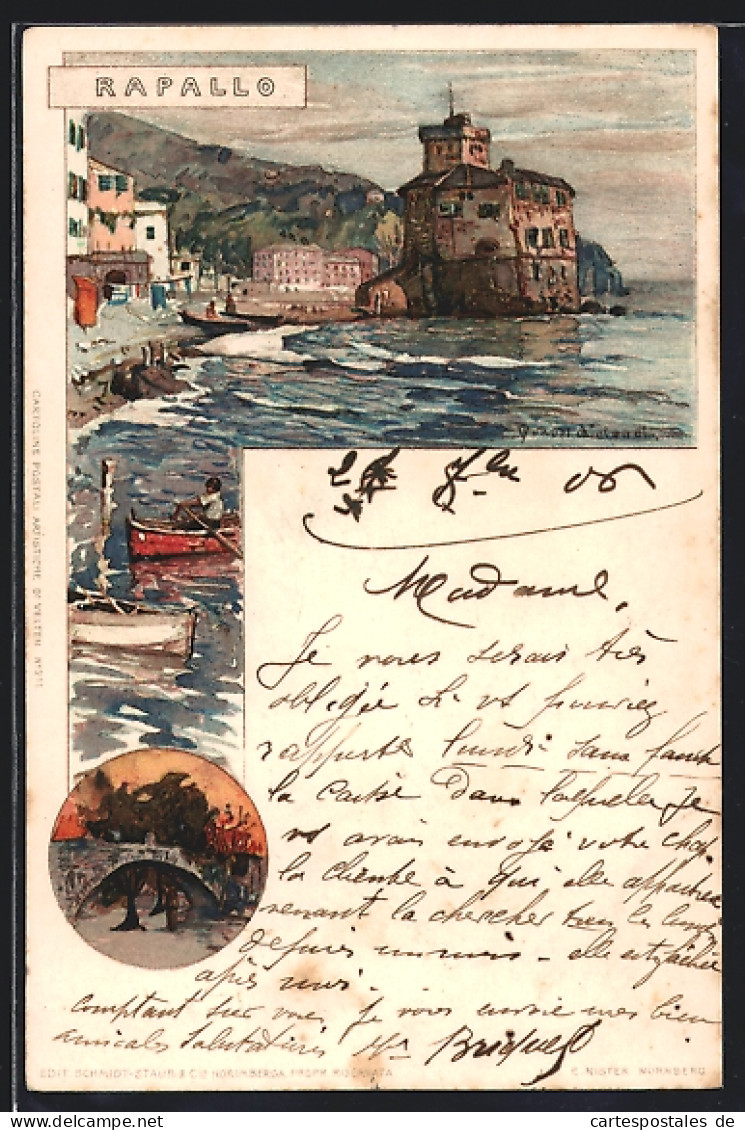 RAPALLO
CARTOLINE POSTALI ARTISTICHE DI VELTEN N° 511
06
Madame,
Je vous serais très
obligée si vs pouviez
rapporter lundi sans faute
la caisse dans laquelle je
vs avais envoyé votre chap.
la cliente à qui elle appartient
venant la chercher tous les lundi
depuis un mois - elle est fâchée
après moi.
Comptant sur vous, je vous envoie mes bien
amicales salutations
EDIT. SCHMIDT-STAUB & Co NORIMBERGA PROPR. RISERVATA
E. NISTER NÜRNBERG
www.cartespostales.de